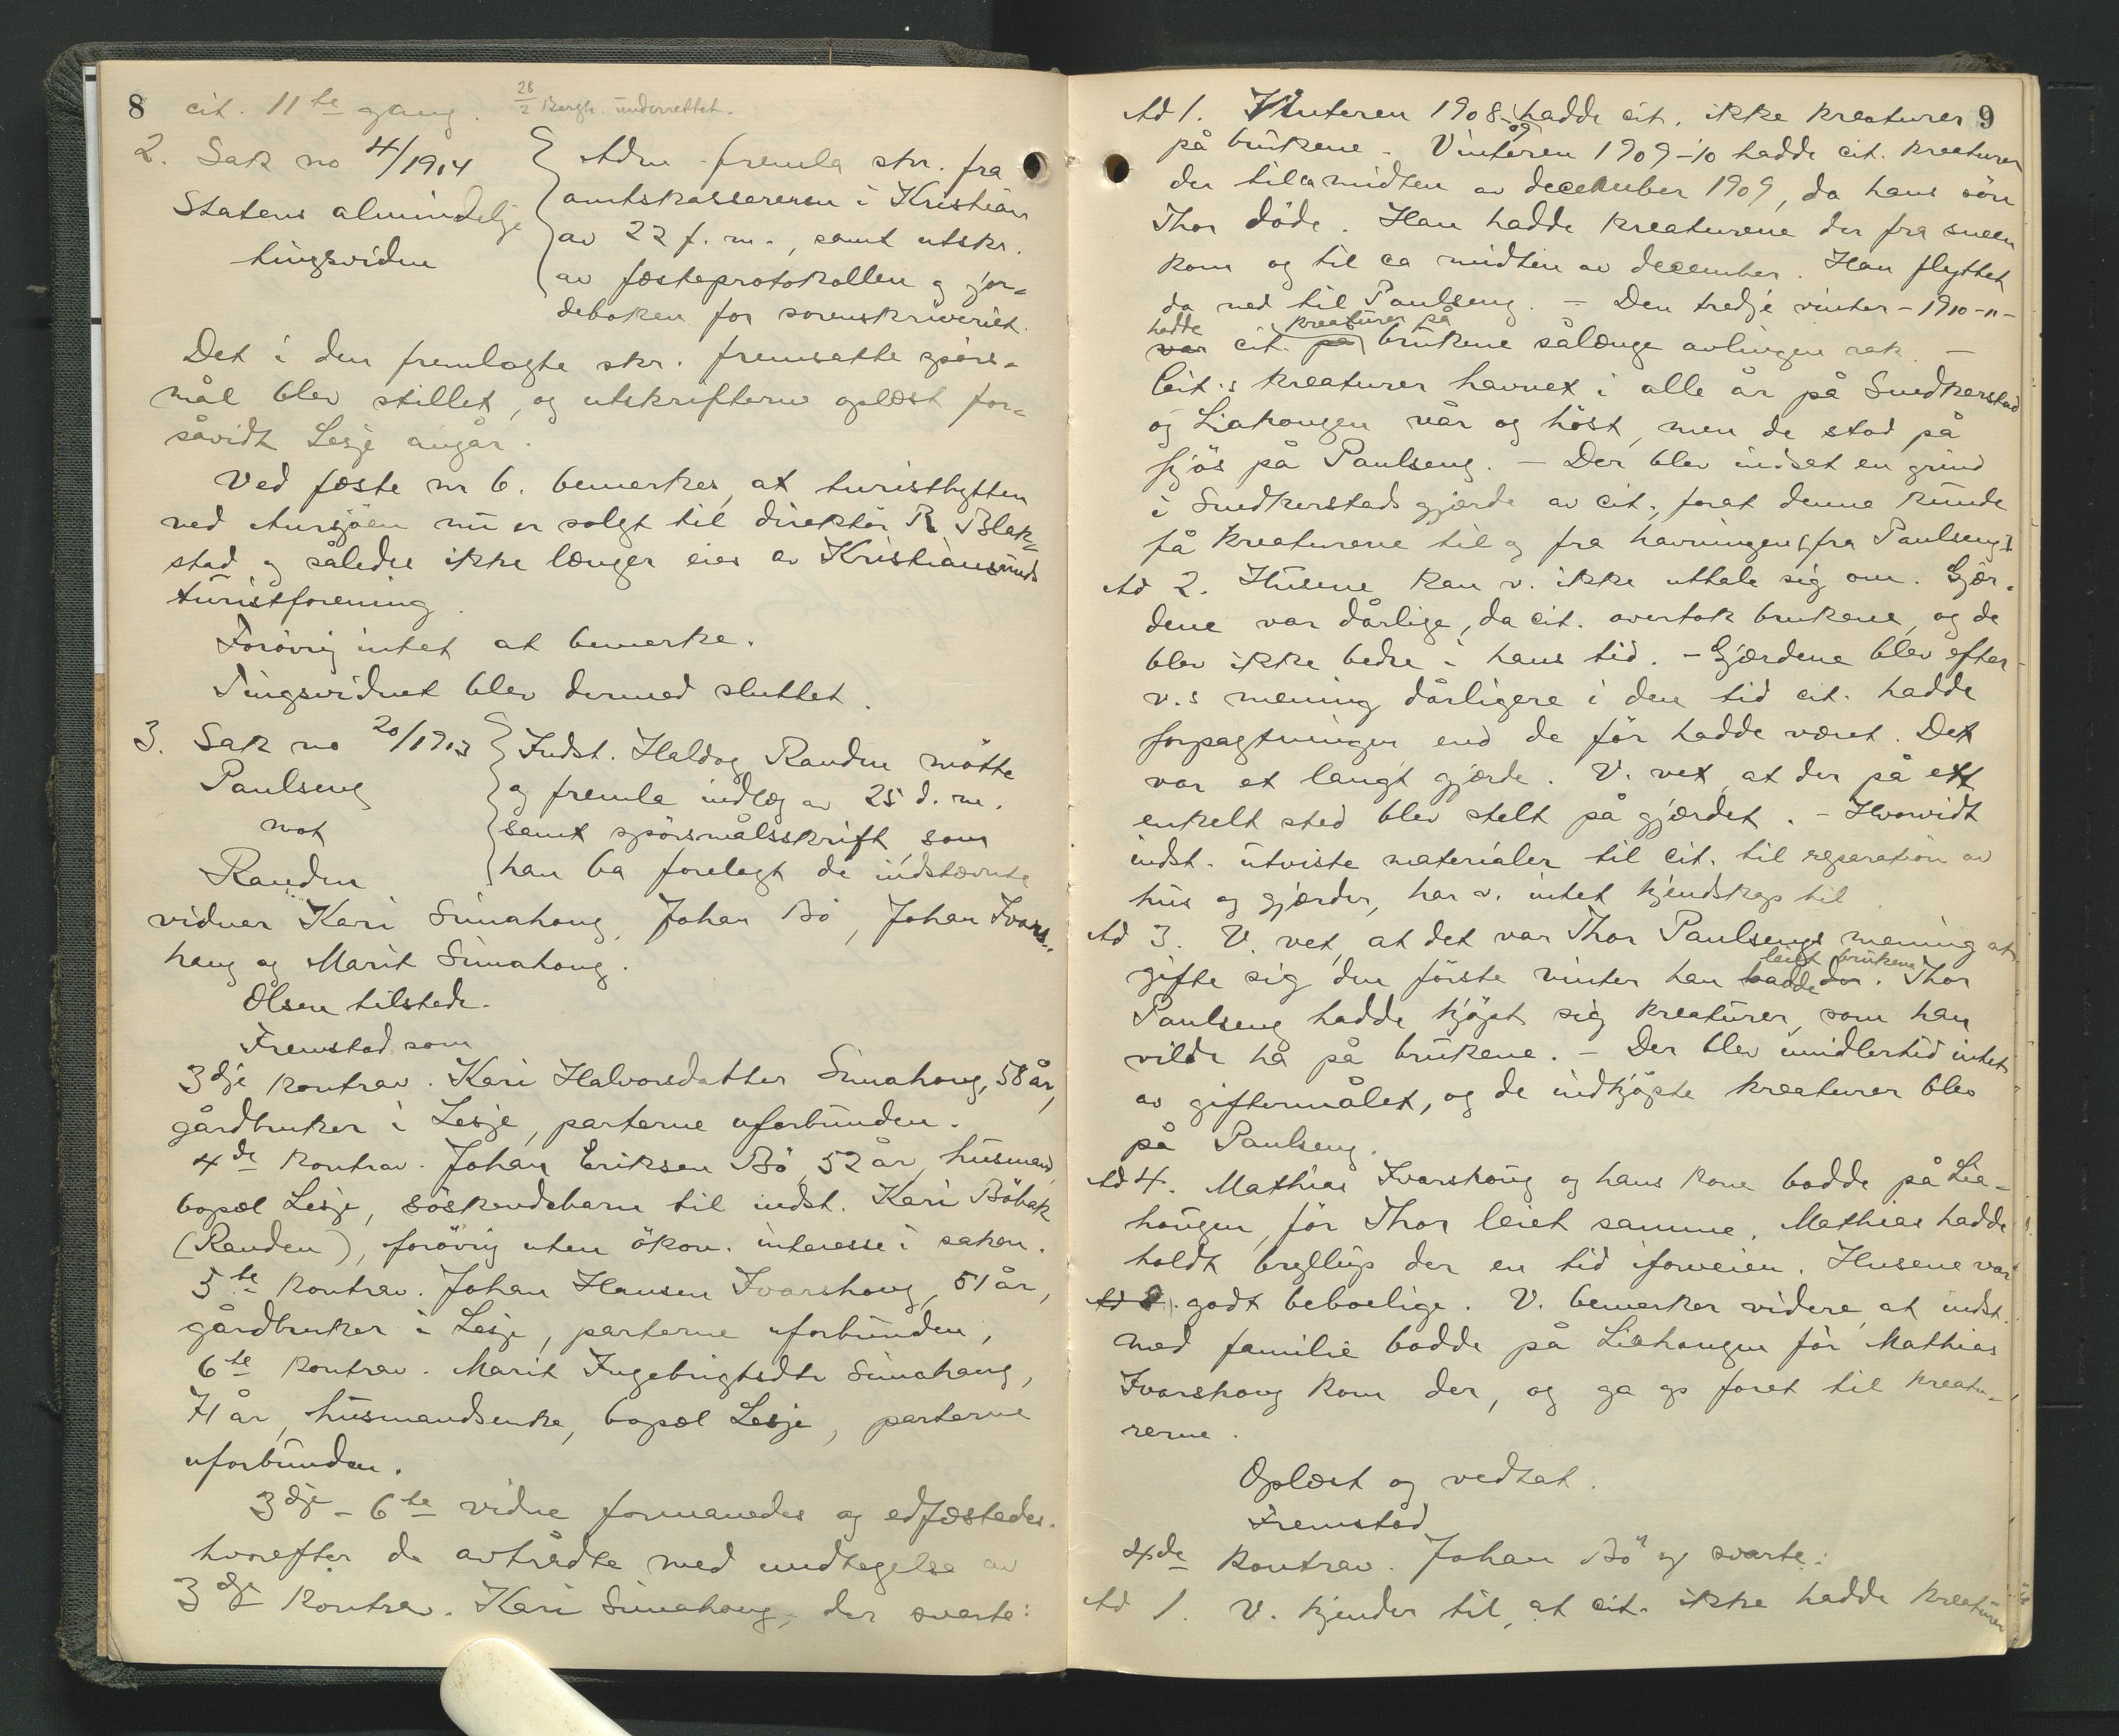 8 cit. 11te gang. 28/2 Bergh. underrettet.
2. Sak no 4/1914
Statens almindelige
tingsvidne
Adm fremla skr. fra
amtskassereren i Kristians
av 22 f. m., samt utskr.
av fæsteprotokollen og jor-
deboken for sorenskriveriet.
Det i den fremlagte skr. fremsatte spörs-
mål blev stillet, og utskrifterne oplæst for-
såvidt Lesje angår.
Ved fæste nr 6. bemerkes, at turisthytten
ved Aursjöen nu er solgt til direktör R Blek-
stad og således ikke længer eies av Kristiansunds
turistforening.
Forövrig intet at bemerke.
Tingsvidnet blev dermed sluttet.
3. Sak no 20/1913
Paulseng
mot
Randen
Indst. Haldog Randen mötte
og fremla indlæg av 25 d. m.
samt spörsmålsskrift som
han ba forelagt de indstævnte
vidner Kari Simahaug, Johan Bö, Johan Ivars-
haug og Marit Simahaug.
Olsen tilstede.
Fremstod som
3dje kontrav. Kari Halvorsdatter Simahaug, 58 år,
gårdbruker i Lesje, parterne uforbunden.
4de kontrav. Johan Eriksen Bö, 52 år, husmand,
bopæl Lesje, söskendebarn til indst. Kari Böbak
(Randen), forövrig uten ökon. interesse i saken.
5te kontrav. Johan Hansen Ivarshaug, 51 år,
gårdbruker i Lesje, parterne uforbunden,
6te kontrav. Marit Ingebrigtsdtr Simahaug,
71 år, husmandsenke, bopæl Lesje, parterne
uforbunden.
3dje - 6te vidne formanedes og edfæstedes.
hvorefter de avtrådte med undtagelse av
3dje kontrav. Kari Simahaug, der svarte:
9
Ad 1. Vinteren 1908-09 hadde cit. ikke kreaturer
på brukene. Vinteren 1909-10 hadde cit. kreaturer
der til ca midten av december 1909, da hans sön
Thor döde. Han hadde kreaturene der fra sneen
kom og til ca midten av december. Han flyttet
da ned til Paulseng. - Den tredje vinter - 1910-11 -
hadde kreaturer på
var cit. på brukene sålænge avlingen rak. -
Cit.s kreaturer havnet i alle år på Snedkerstad
og Liahaugen vår og höst, men de stod på
fjös på Paulseng. - Der blev indsat en grind
i Snedkerstads gjærde av cit., forat denne kunde
få kreaturene til og fra havningen (fra Paulseng).
Ad 2. Husene kan v. ikke uttale sig om. Gjær-
dene var dårlige, da cit. overtok brukene, og de
blev ikke bedre i hans tid. - Gjærdene blev efter
v.s mening dårligere i den tid cit. hadde
forpagtningen end de för hadde været. Det
var et langt gjærde. V. vet, at der på ett
enkelt sted blev stelt på gjærdet. - Hvorvidt
indst. utviste materialer til cit. til reparation av
hus og gjærder, har v. intet kjendskap til.
Ad 3. V. vet, at det var Thor Paulsengs mening at
leiet brukene
gifte sig den förste vinter han hadde der. Thor
Paulseng hadde kjöpt sig kreaturer, som han
vilde ha på brukene. - Der blev imidlertid intet
av giftermålet, og de indkjöpte kreaturer blev
på Paulseng.
Ad 4. Mathias Ivarshaug og hans kone bodde på Lia-
haugen, för Thor leiet samme. Mathias hadde
holdt bryllup der en tid iforveien. Husene var
godt beboelige. V. bemerker videre, at indst.
med familie bodde på Liahaugen för Mathias
Ivarshaug kom der, og ga op foret til kreatu-
rerne.
Oplæst og vedtat.
Fremstod
4de kontrav. Johan Bö og svarte:
Ad 1. V. kjender til, at cit. ikke hadde kreaturer